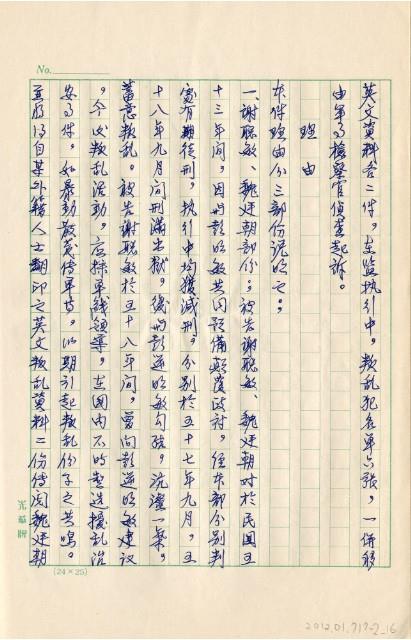 No.
英文資料各二件,在監執行中,叛亂犯名單六張,一併移
由軍事檢察官偵查起訴。
理由
本件理由分三部份說明之:
一、謝聰敏、魏廷朝部份:被告謝聰敏、魏廷朝對於民國五
十三年間,因與彭明敏共同預備顛覆政府,經本部分別判
處有期徒刑,執行中均獲減刑,分別於五十七年九月,五
十八年九月間刑滿出獄,後與彭逆明敏勾強,沆瀣一氣,
蓄意叛乱。被告謝聰敏於五十八年間,曾向彭逆明敏建议
,今次叛乱活動,应採单线領導,在國内不時製造擾乱治
安事件,如暴動散發传单等,以期引起叛乱份子之共鳴。
並將得自某外籍人士翻印之英文叛乱資料二份传阅魏廷朝
光華牌
(24×25)
2012.01.717-2_16